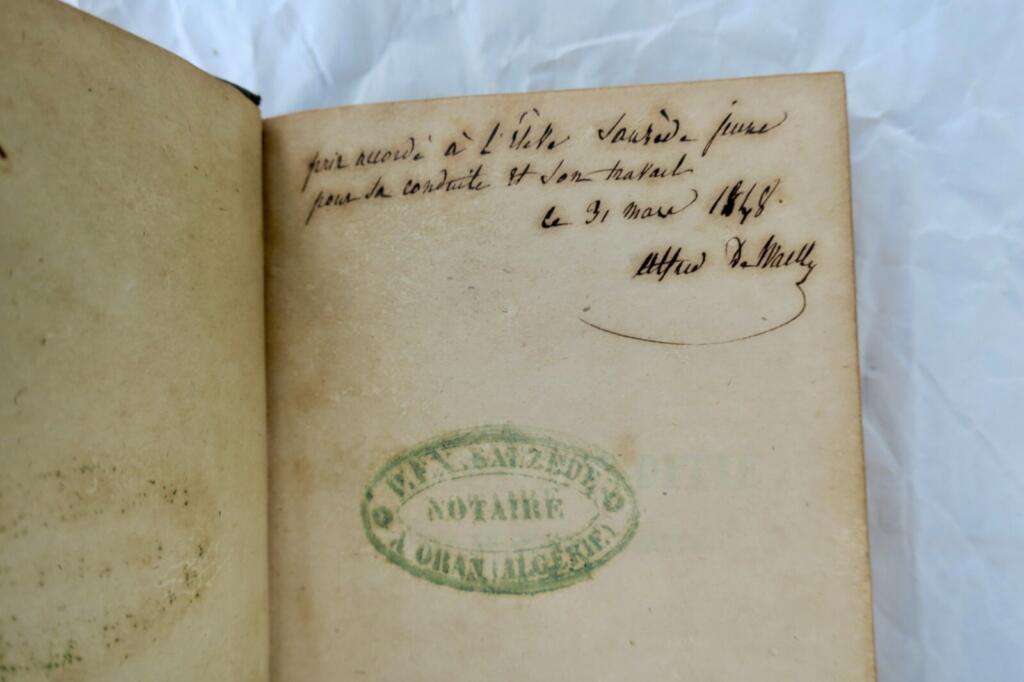 prix accordé à l'Élève Sauzède jeune
pour sa conduite et son travail
le 31 mars 1848.
Alfred De Wailly
F.FX. SAUZEDE,
NOTAIRE
A ORAN (ALGÉRIE.)